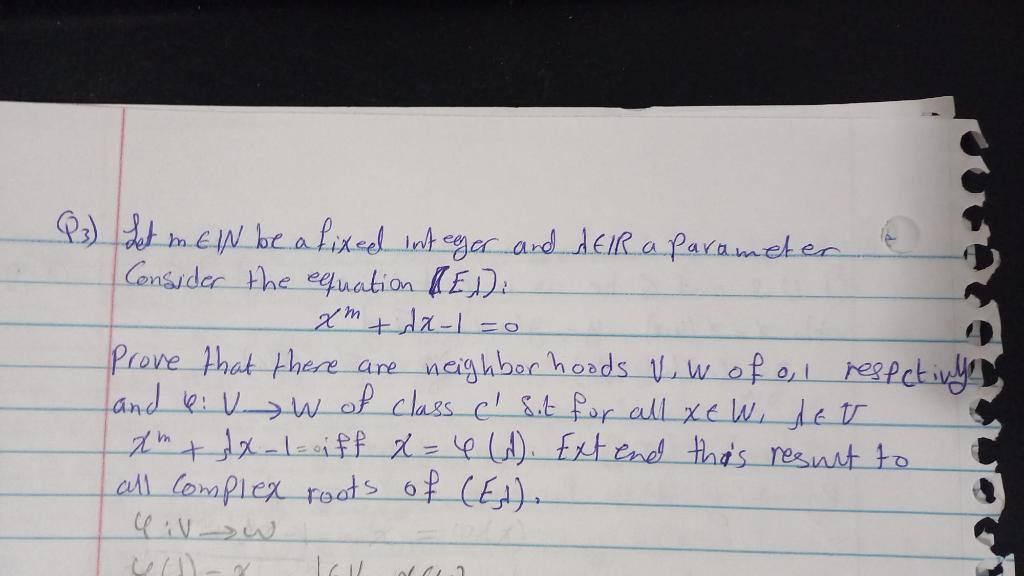 Q3) Let m ∈ IN be a fixed integer and λ ∈ IR a parameter
Consider the equation (Eλ):
x^m + λx - 1 = 0
Prove that there are neighborhoods V, W of 0,1 respctively
and φ: V → W of class C' s.t for all x ∈ W, λ ∈ V
x^m + λx - 1 = 0 iff x = φ(λ). Extend this result to
all Complex roots of (Eλ).
φ: V → W
φ(λ) = x